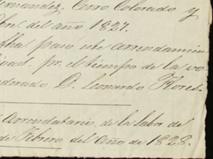 ernandez. Cerro Colorado y
bre del año 1827.
para este arrendamien
pr. el tiempo de la vo
derado D. Leonardo Flores.
Arrendatario de la labor del
de Febrero del Año de 1828.